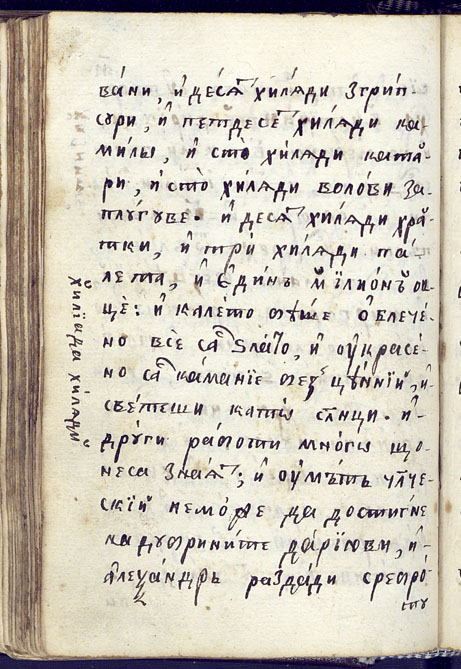 ва́ни, и҆ десѧ҃ⷮ хилѧ́ди згрип
сѹри, и҆ петдесеⷮ хилѧ́ди ка
ми́лы, и҆ сто̀ хилѧ́ди ката̀
ри, и҆ сто̀ хилѧди волови за
плꙋ́гꙋве. и҆ десѧⷮ хилѧ́ди хра̀
тки, и҆ трѝ хилѧ́ди па
лета, и҆ є҆ди́нъ милїо́нъ ѡв
цѐ: и҆ ѡ҆блече́
но всѐ саⷭ ѕла́то, и҆ оу҆красе́
но саⷭ ка́манїе цѣ́ннїй, и҆
све́тещи като̀ слⷩци. и҆
дрꙋги работи мно́гѡ що̀
не са знаѧⷮ; и҆ оу҆мътъ чл҃че
скїй не мо́же да дости́гне
на двѡрините да́рїюви, и҆
а҆леѯа́ндръ разда́ди сребро̀
тꙋ
хилїада хилѧдй